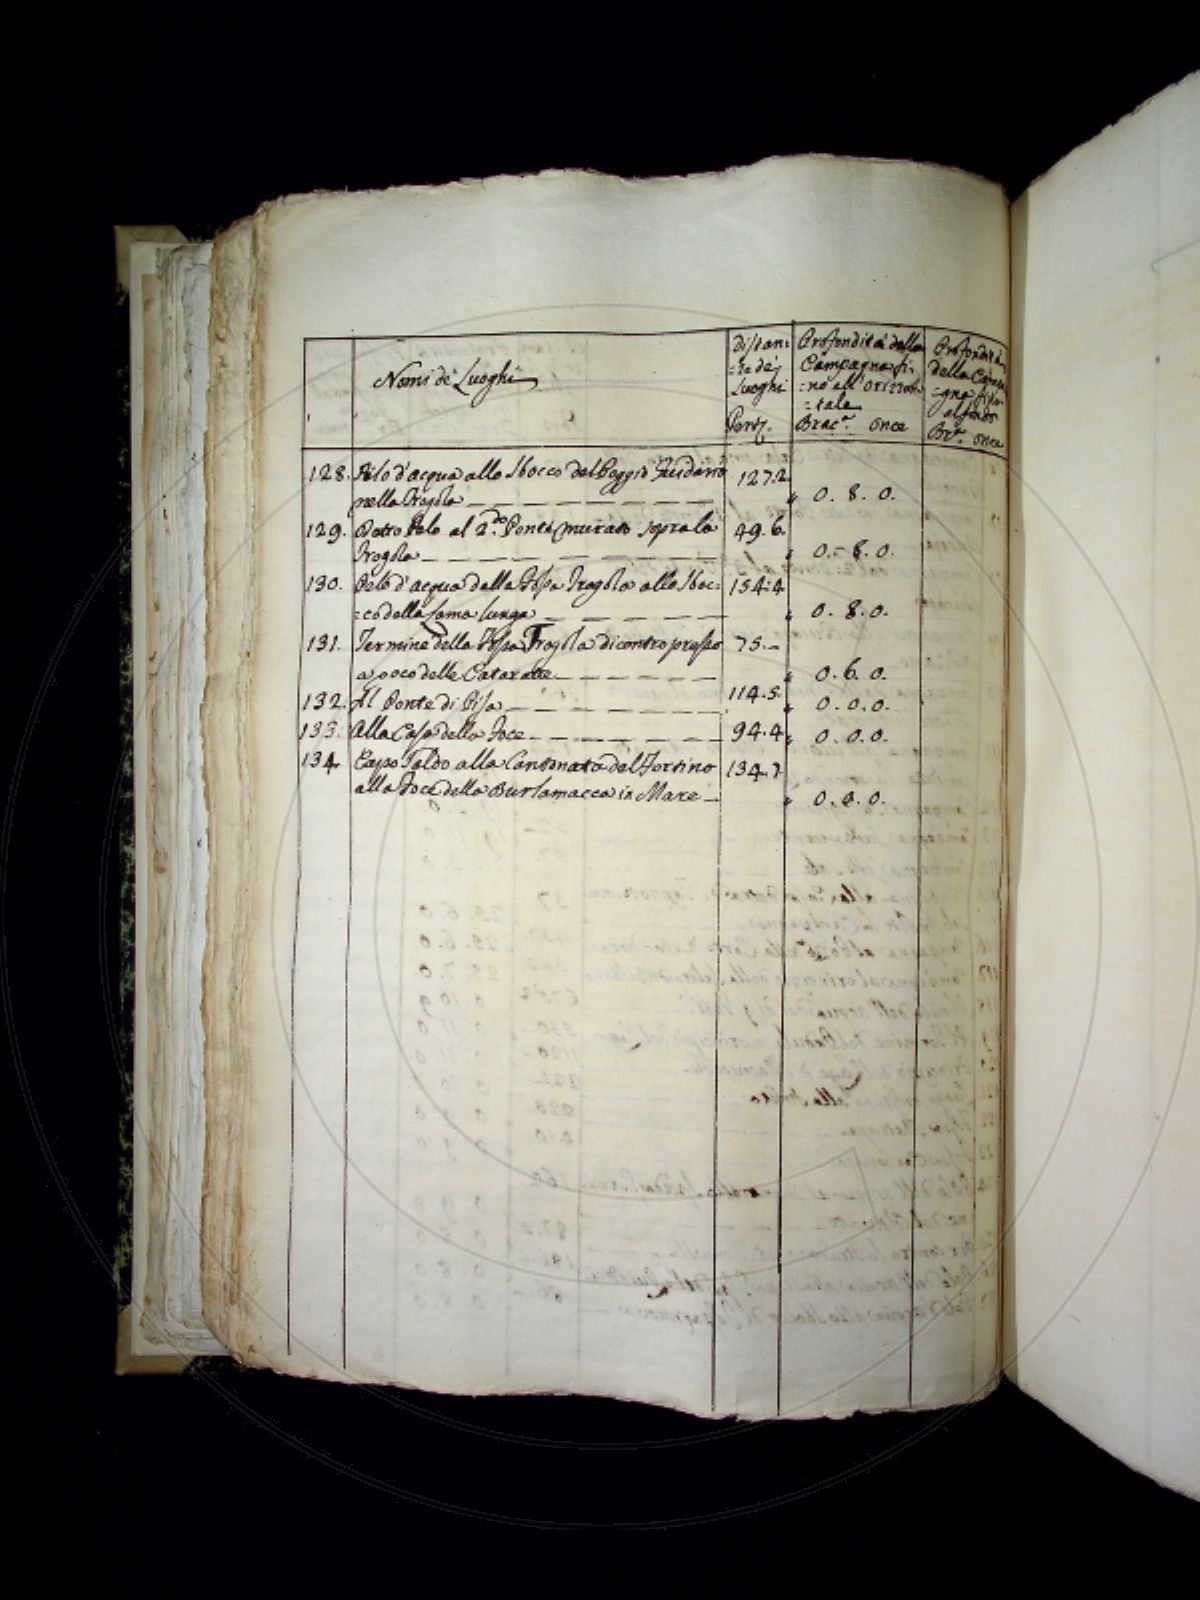 Nomi de' Luoghi
Distan=
=ze de'
Luoghi
Pert.
Profondità della
Campagna fi=
=no all'orizzon=
=tale
Brac.a once
Profondità
della Campa=
=gna fino
al fondo
Br.a once
128. Pelo d'acqua allo sbocco del Poggio 127.2
nella Fragola 0. 8. 0.
129. Detto Pelo al 2.do Ponte murato sopra la 49.6.
Fragola 0. 8. 0.
130. Pelo d'acqua della Fossa Fragola allo sboc= 154.4
=co della fama lunga 0. 8. 0.
131. Termine della Fossa Fragola di contro presso 75.-
a poco delle Cataratte 0. 6. 0.
132. Al Ponte di Pisa 114.5. 0. 0. 0.
133. Alla Casa della Foce 94.4 0. 0. 0.
134. Capo Saldo alla Cantonata del Fortino 134.
alla Foce della Burlamacca in Mare 0. 0. 0.